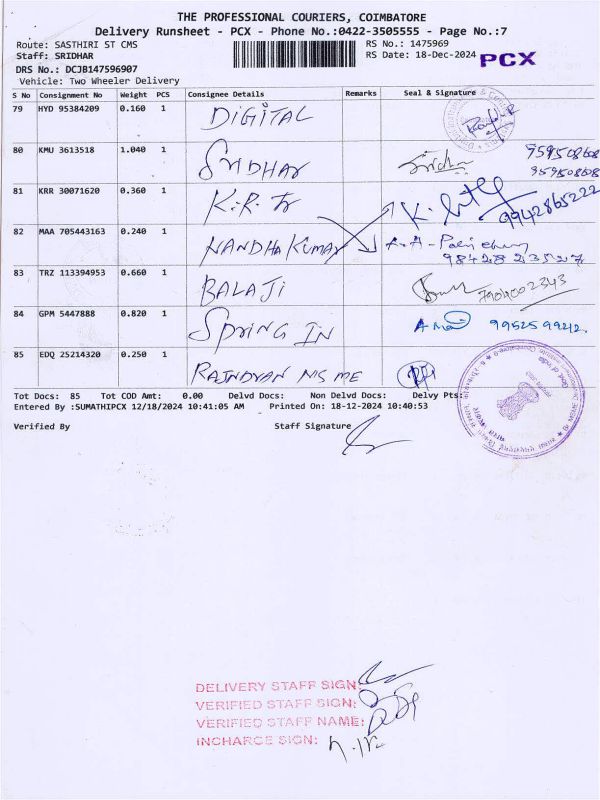 THE PROFESSIONAL COURIERS, COIMBATORE
Delivery Runsheet - PCX - Phone No.:0422-3505555 - Page No.:7
Route: SASTHIRI ST CMS
RS No.: 1475969
Staff: SRIDHAR
RS Date: 18-Dec-2024
PCX
DRS No.: DCJB147596907
Vehicle: Two Wheeler Delivery
S No Consignment No Weight PCS Consignee Details Remarks Seal & Signature
79 HYD 95384209 0.160 1 DIGITAL
80 KMU 3613518 1.040 1 SRIDHAR Sridhar
81 KRR 30071620 0.360 1 K.R. Tr 9942865222
82 MAA 705443163 0.240 1 NANDHAKUMAR 9842823527
83 TRZ 113394953 0.660 1 BALAJI 7904002343
84 GPM 5447888 0.820 1 SPRING IN
85 EDQ 25214320 0.250 1 MSME
Tot Docs: 85 Tot COD Amt: 0.00 Delvd Docs: Non Delvd Docs: Delvy Pts:
Entered By :SUMATHIPCX 12/18/2024 10:41:05 AM Printed On: 18-12-2024 10:40:53
Verified By Staff Signature
DELIVERY STAFF SIGN:
VERIFIED STAFF SIGN:
VERIFIED STAFF NAME:
INCHARGE SIGN: